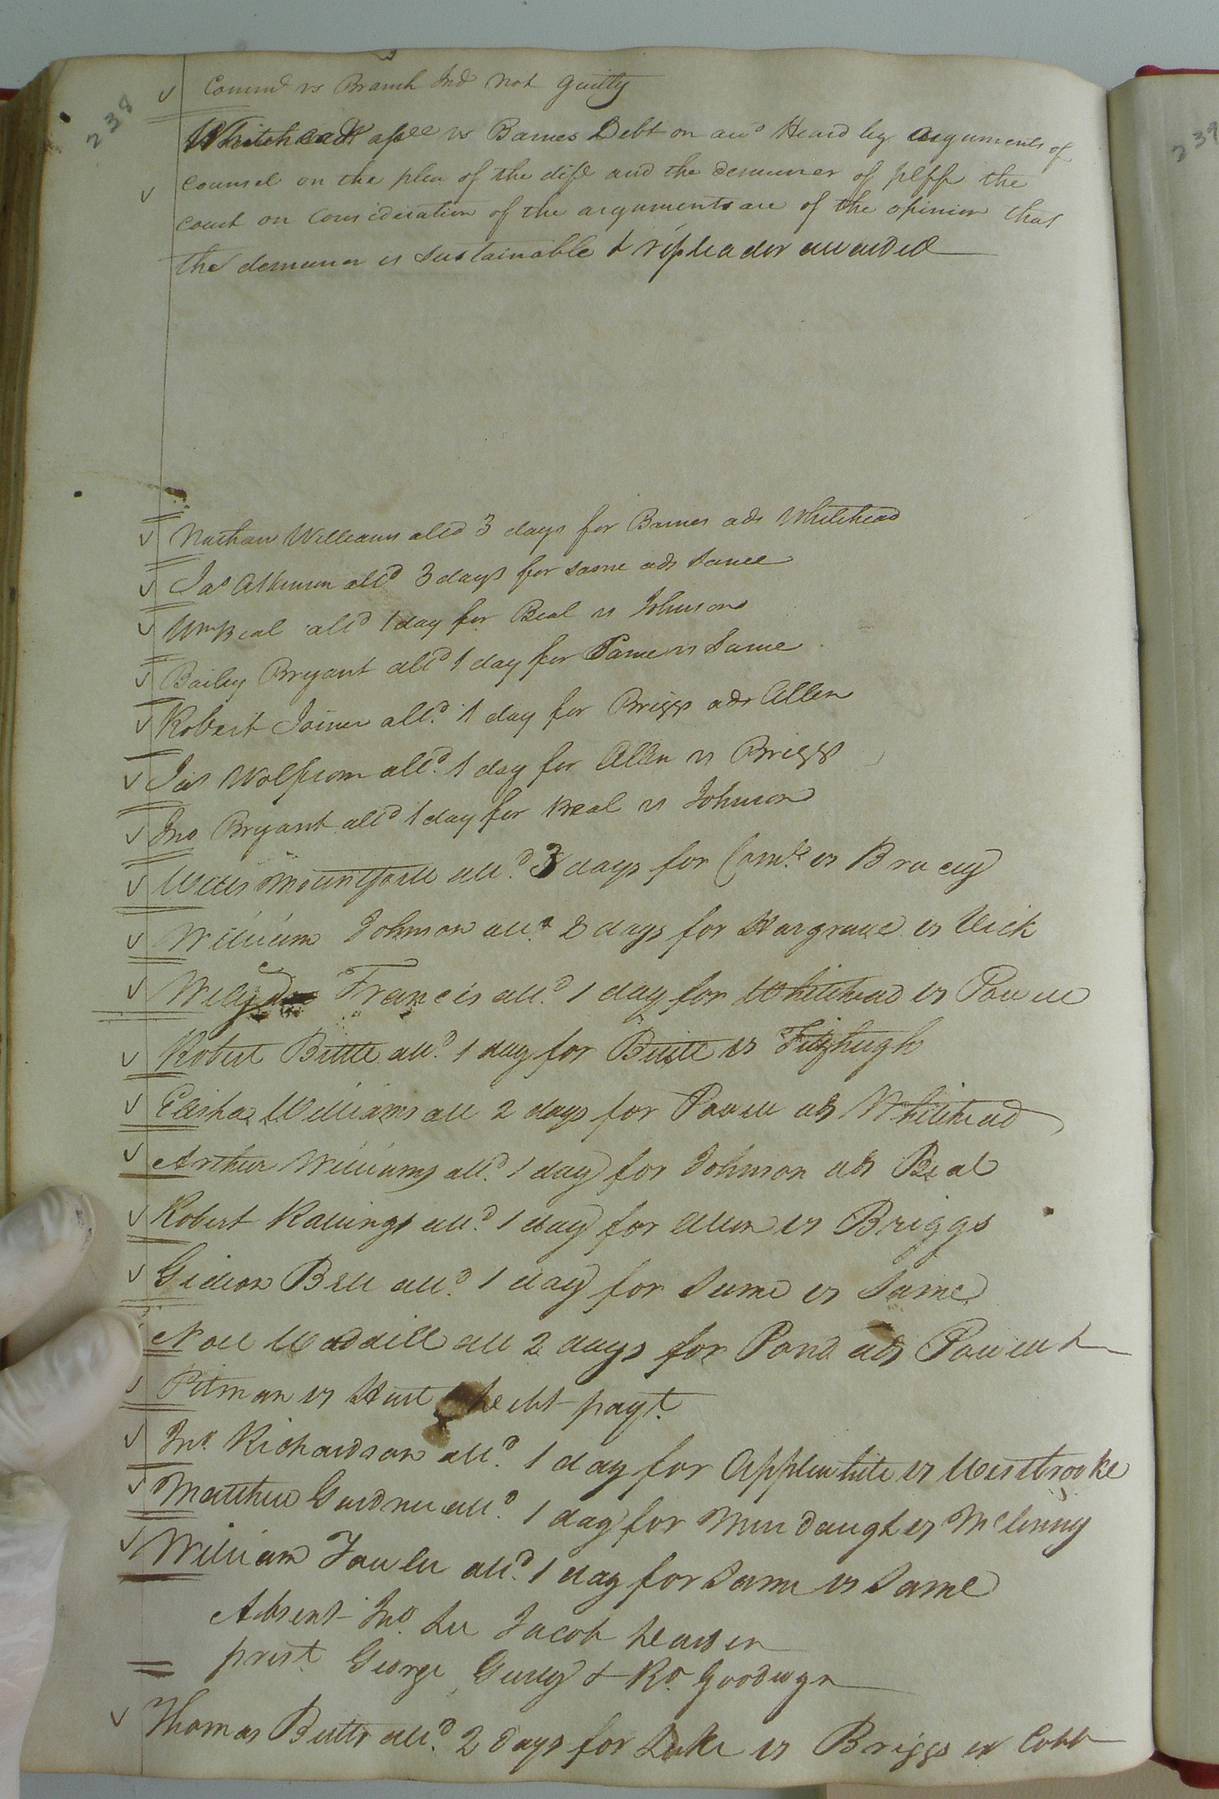 238
239
Commd vs Branch Ind not guilty
Whitehead assee vs Barnes Debt on awd Heard by arguments of
counsel on the plea of the dift and the demurrer of plff the
court on consideration of the arguments are of the opinion that
the demurrer is sustainable & repleader awarded
Nathan Williams alld 3 days for Barnes ads Whitehead
Jas Atkinson alld 3 days for same ads Same
Wm Beal alld 1 day for Beal vs Johnson
Bailey Bryant alld 1 day for Same vs Same
Robert Joiner alld. 1 day for Briggs ads Allen
Jas Wolfrom alld. 1 day for Allen vs Briggs
Jno Bryant alld 1 day for Beal vs Johnson
Mountfort alld. 3 days for Comth vs Bracey
William Johnson alld 2 days for Hargrave vs Vick
Francis alld. 1 day for Whitehead vs Powell
Robert Bittle alld. 1 day for Bittle vs Fitzhugh
Elisha Williams all 2 days for Powell ads Whitehead
Arthur Williams alld. 1 day for Johnson ads Beal
Robert Rawlings alld. 1 day for Allen vs Briggs
Gideon Bell alld. 1 day for Same vs Same
Noel Waddill all 2 days for Pond ads Powell
Pitman vs Hart Debt payt.
Jno. Richardson alld. 1 day for Applewhite vs Westbrooke
Matthew Gardner alld. 1 day for Murdaugh vs McCinny
William Fowler alld. 1 day for Same vs Same
Absent Jno. Lee Jacob
prest. George Gurley & Ro. Goodwyn
Thomas Butts alld. 2 days for Luke vs Briggs ex Cobb